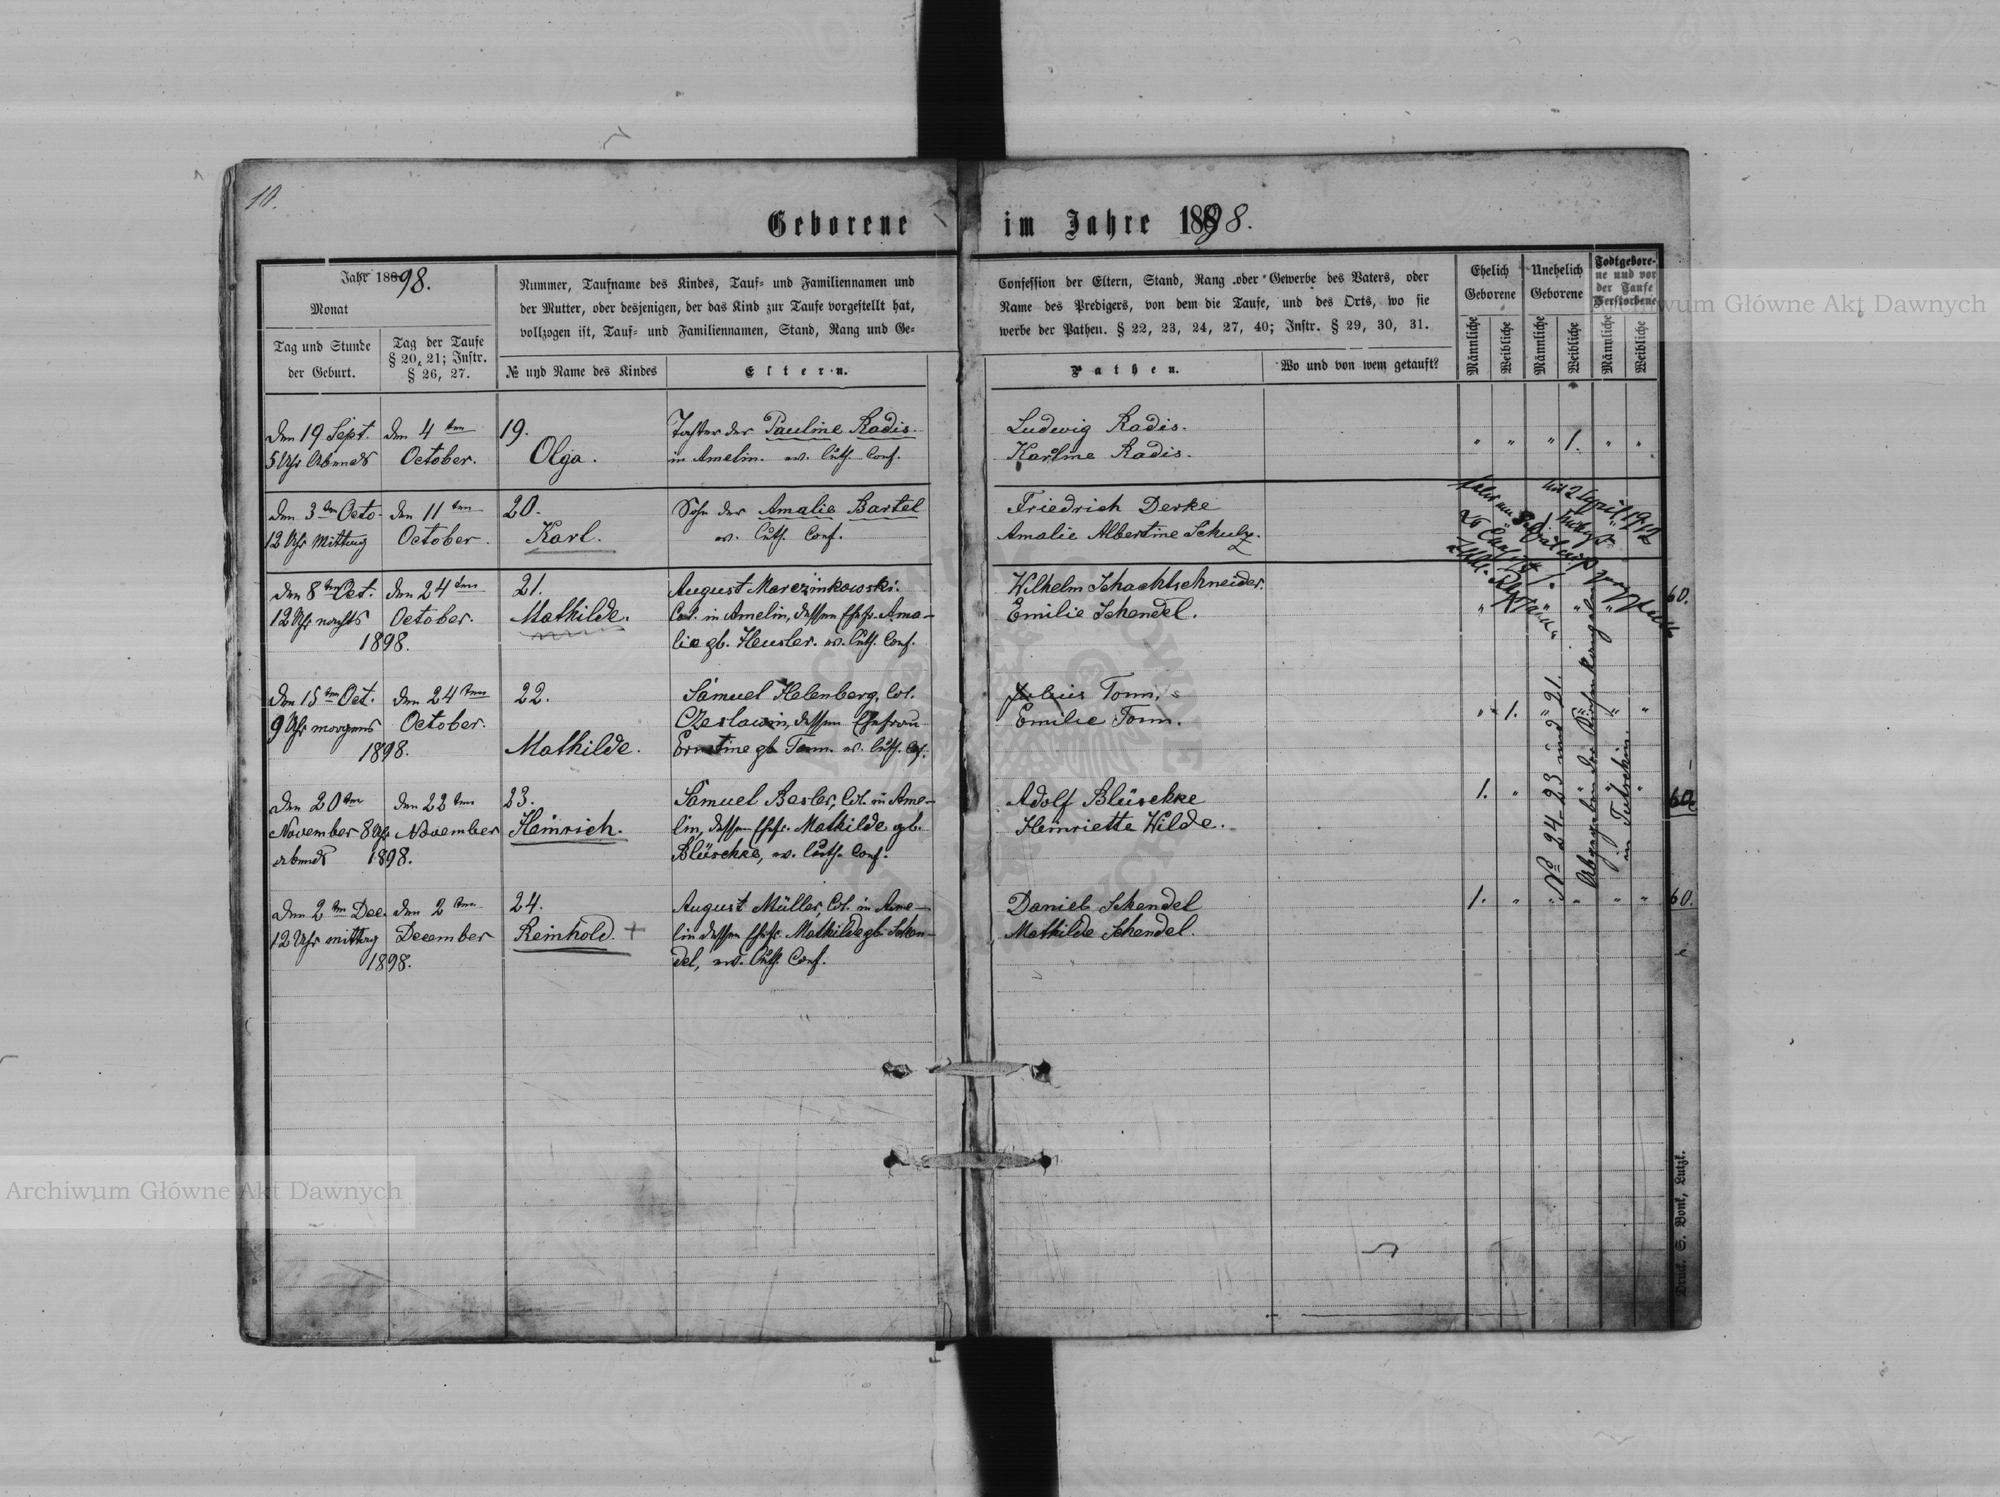 10.
Geborene im Jahre 1898.
Jahr 1898.
Monat
Tag und Stunde
der Geburt.
Tag der Taufe
§ 20, 21; Instr.
§ 26, 27.
Nummer, Taufname des Kindes, Tauf- und Familiennamen und
der Mutter, oder desjenigen, der das Kind zur Taufe vorgestellt hat,
vollzogen ist, Tauf- und Familiennamen, Stand, Rang und Ge-
№ und Name des Kindes
Eltern.
Confession der Eltern, Stand, Rang oder Gewerbe des Vaters, oder
Name des Predigers, von dem die Taufe, und des Orts, wo sie
werbe der Pathen. § 22, 23, 24, 27, 40; Instr. § 29, 30, 31.
Pathen.
Wo und von wem getauft?
Ehelich
Geborene
Unehelich
Geborene
Todtgebore-
ne und vor
der Taufe
Verstorbene
Männliche
Weibliche
Männliche
Weibliche
Männliche
Weibliche
Den 19 Sept.
5 Uhr Abends
den 4 ten
October.
19.
Olga.
Tochter der Pauline Radis.
in Amelin. ev. luth. Conf.
Ludwig Radis.
Karline Radis.
" " " 1. " "
Den 3 ten Octo-
12 Uhr Mittag
den 11 ten
October.
20.
Karl.
Sohn der Amalie Bartel
ev. luth. Conf.
Friedrich Derke
Amalie Albertine Schulz.
Den 8 ten Oct.
12 Uhr nachts
den 24 ten
October.
1898.
21.
Mathilde.
August Marczinkowski.
Col. in Amelin, dessen Ehefr. Ama-
lie gb. Heusler. ev. luth. Conf.
Wilhelm Schachtschneider.
Emilie Schendel.
60.
Den 15 ten Oct.
9 Uhr morgens
den 24 ten
October.
1898.
22.
Mathilde.
Samuel Helenberg, Col.
Czeslawin, dessen Ehefrau
Ernstine gb Tonn. ev. luth. Cf.
Julius Tonn.
Emilie Tonn.
" 1. " " " "
Den 20 ten
November 8 Uhr
abends
den 22 ten
November
1898.
23.
Heinrich.
Samuel Besler, Col. in Ame-
lin, dessen Ehefr. Mathilde gb.
Blüschke, ev. luth. Conf.
Adolf Blüschke
Henriette Wilde.
1. "
60.
Den 2 ten Dec.
12 Uhr mittag
den 2 ten
December
1898.
24.
Reinhold. +
August Müller, Col. in Ame-
lin dessen Ehefr. Mathilde gb. Schen-
del, ev. luth. Conf.
Daniel Schendel
Mathilde Schendel.
1. " " " " "
60.
No 24 23 und 21.
Abgegeben
in
Druck. S. Bonk, Lutzk.
Archiwum Główne Akt Dawnych
Archiwum Główne Akt Dawnych